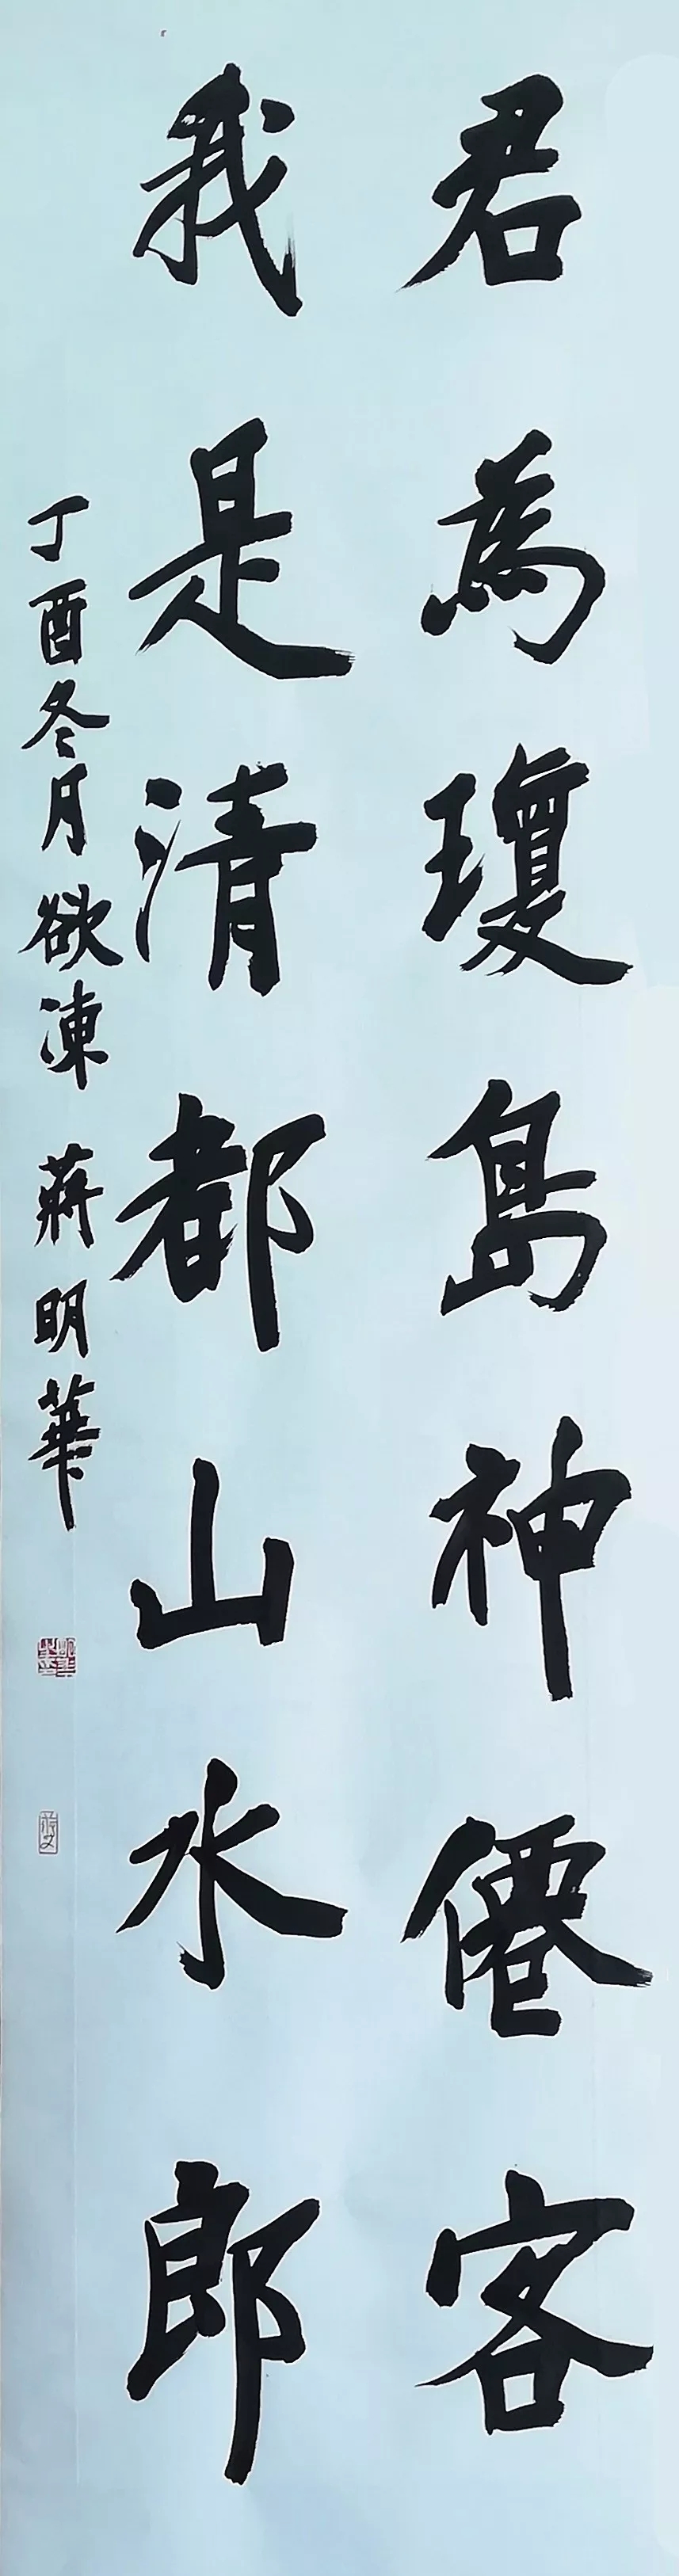 君為瓊島神僊客
我是清都山水郎
丁酉冬月欲凍 蔣明華